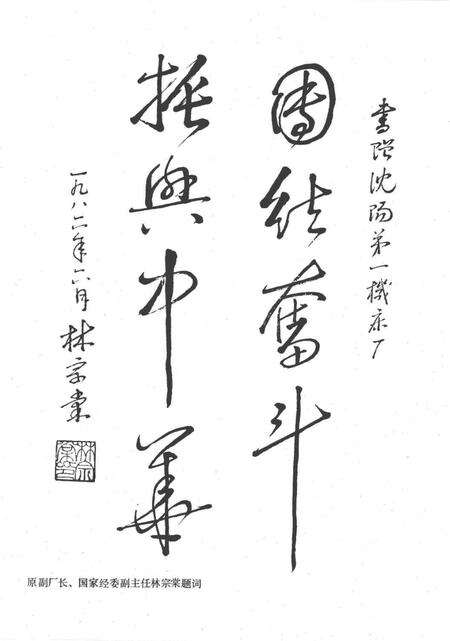 書贈沈阳第一機床厂
團结奮斗
振興中華
一九八二年六月 林宗棠
原副厂长、国家经委副主任林宗棠题词